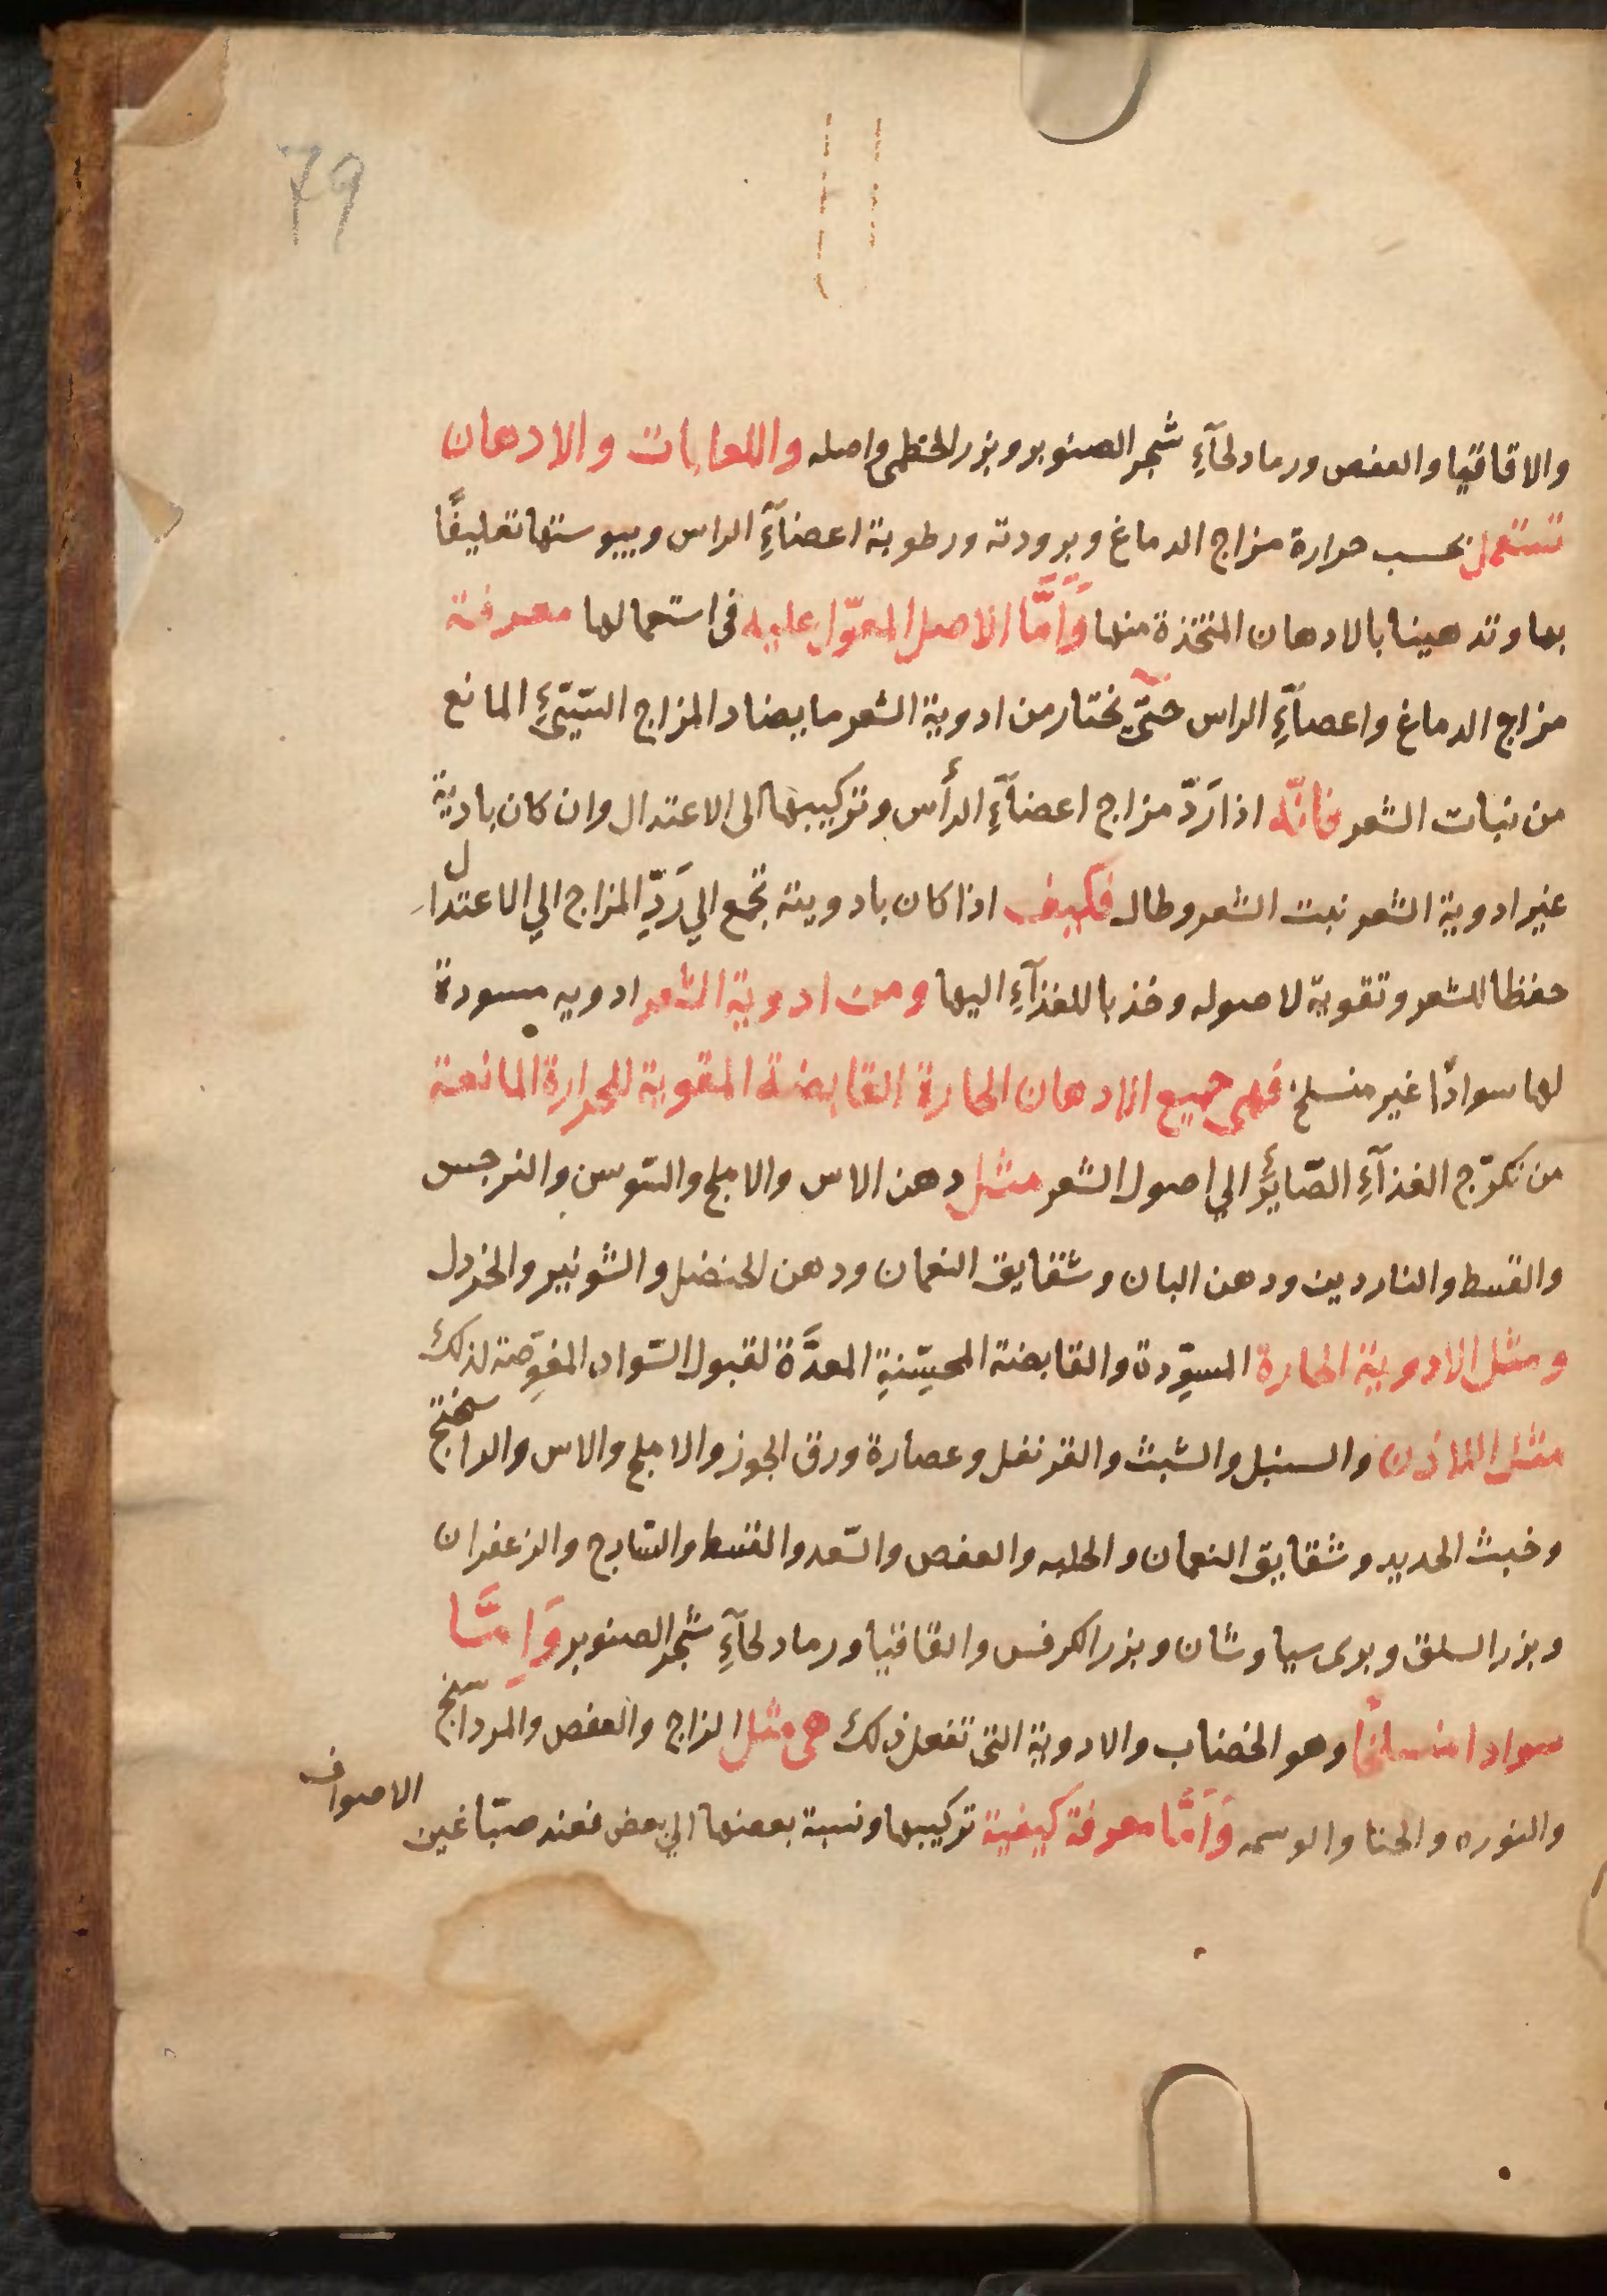 79
والاقاقيا والعفص ورماد لحآءِ شجر الصنوبر وبزر الخطمى واصله واللعابات والادهان
تستعمل بحسب حرارة مزاج الدماغ وبرودته ورطوبة اعضآءِ الراس ويبوستها تغليفًا
بها وتدهينا بالادهان المتخذة منها وَأمَّا الاصل المعوّل عليه فى استعمالها معرفة
مزاج الدماغ واعضآءِ الراس حتّى نختار من ادوية الشعر ما يضاد المزاج السّيّىءِ المانع
من نبات الشعر فانّه اذا رَدّ مزاج اعضآءِ الرأس وتركيبها الى الاعتدال وان كان بادية
غير ادوية الشعر نبت الشعر وطال فكيف اذا كان بادوية تجمع الي رَدِّ المزاج الي الاعتدال
حفظا للشعر وتقوية لاصوله وجذبا للغذآءِ اليها ومن ادوية الشعر ادويه مسودة
لها سوادًا غير منسلخ فهى جميع الادهان الحارة القابضة المقوية للحرارة المانعة
من تكرّج الغذآءِ الصّايرِ الي اصول الشعر مثل دهن الاس والاملج والسّوسن والنرجس
والقسط والناردين ودهن البان وشقايق النعمان ودهن الحنضل والشونيز والخردل
ومثل الادوية الحارة المسوِّدة والقابضة المحسّنةِ المعدَّة لقبول السّواد المغوصة لذلك
مثل اللاذن والسنبل والشبث والقرنفل وعصارة ورق الجوز والاملج والاس والراسختج
وخبث الحديد وشقايق النعمان والحلبه والعفص والسّعد والقسط والسّادج والزعفران
وبزر السلق وبرى سياوشان وبزر الكرفس والقاقيا ورماد لحآءِ شجر الصنوبر وَامَّا
سوادا منسلخًا وهو الخضاب والادوية التى تفعل ذلك هى مثل الزاج والعفص والمرداسنج
والنوره والحنا والوسمه وَأمَّا معرفة كيفية تركيبها ونسبة بعضها الي بعض فعند صبّاغين الاصواف